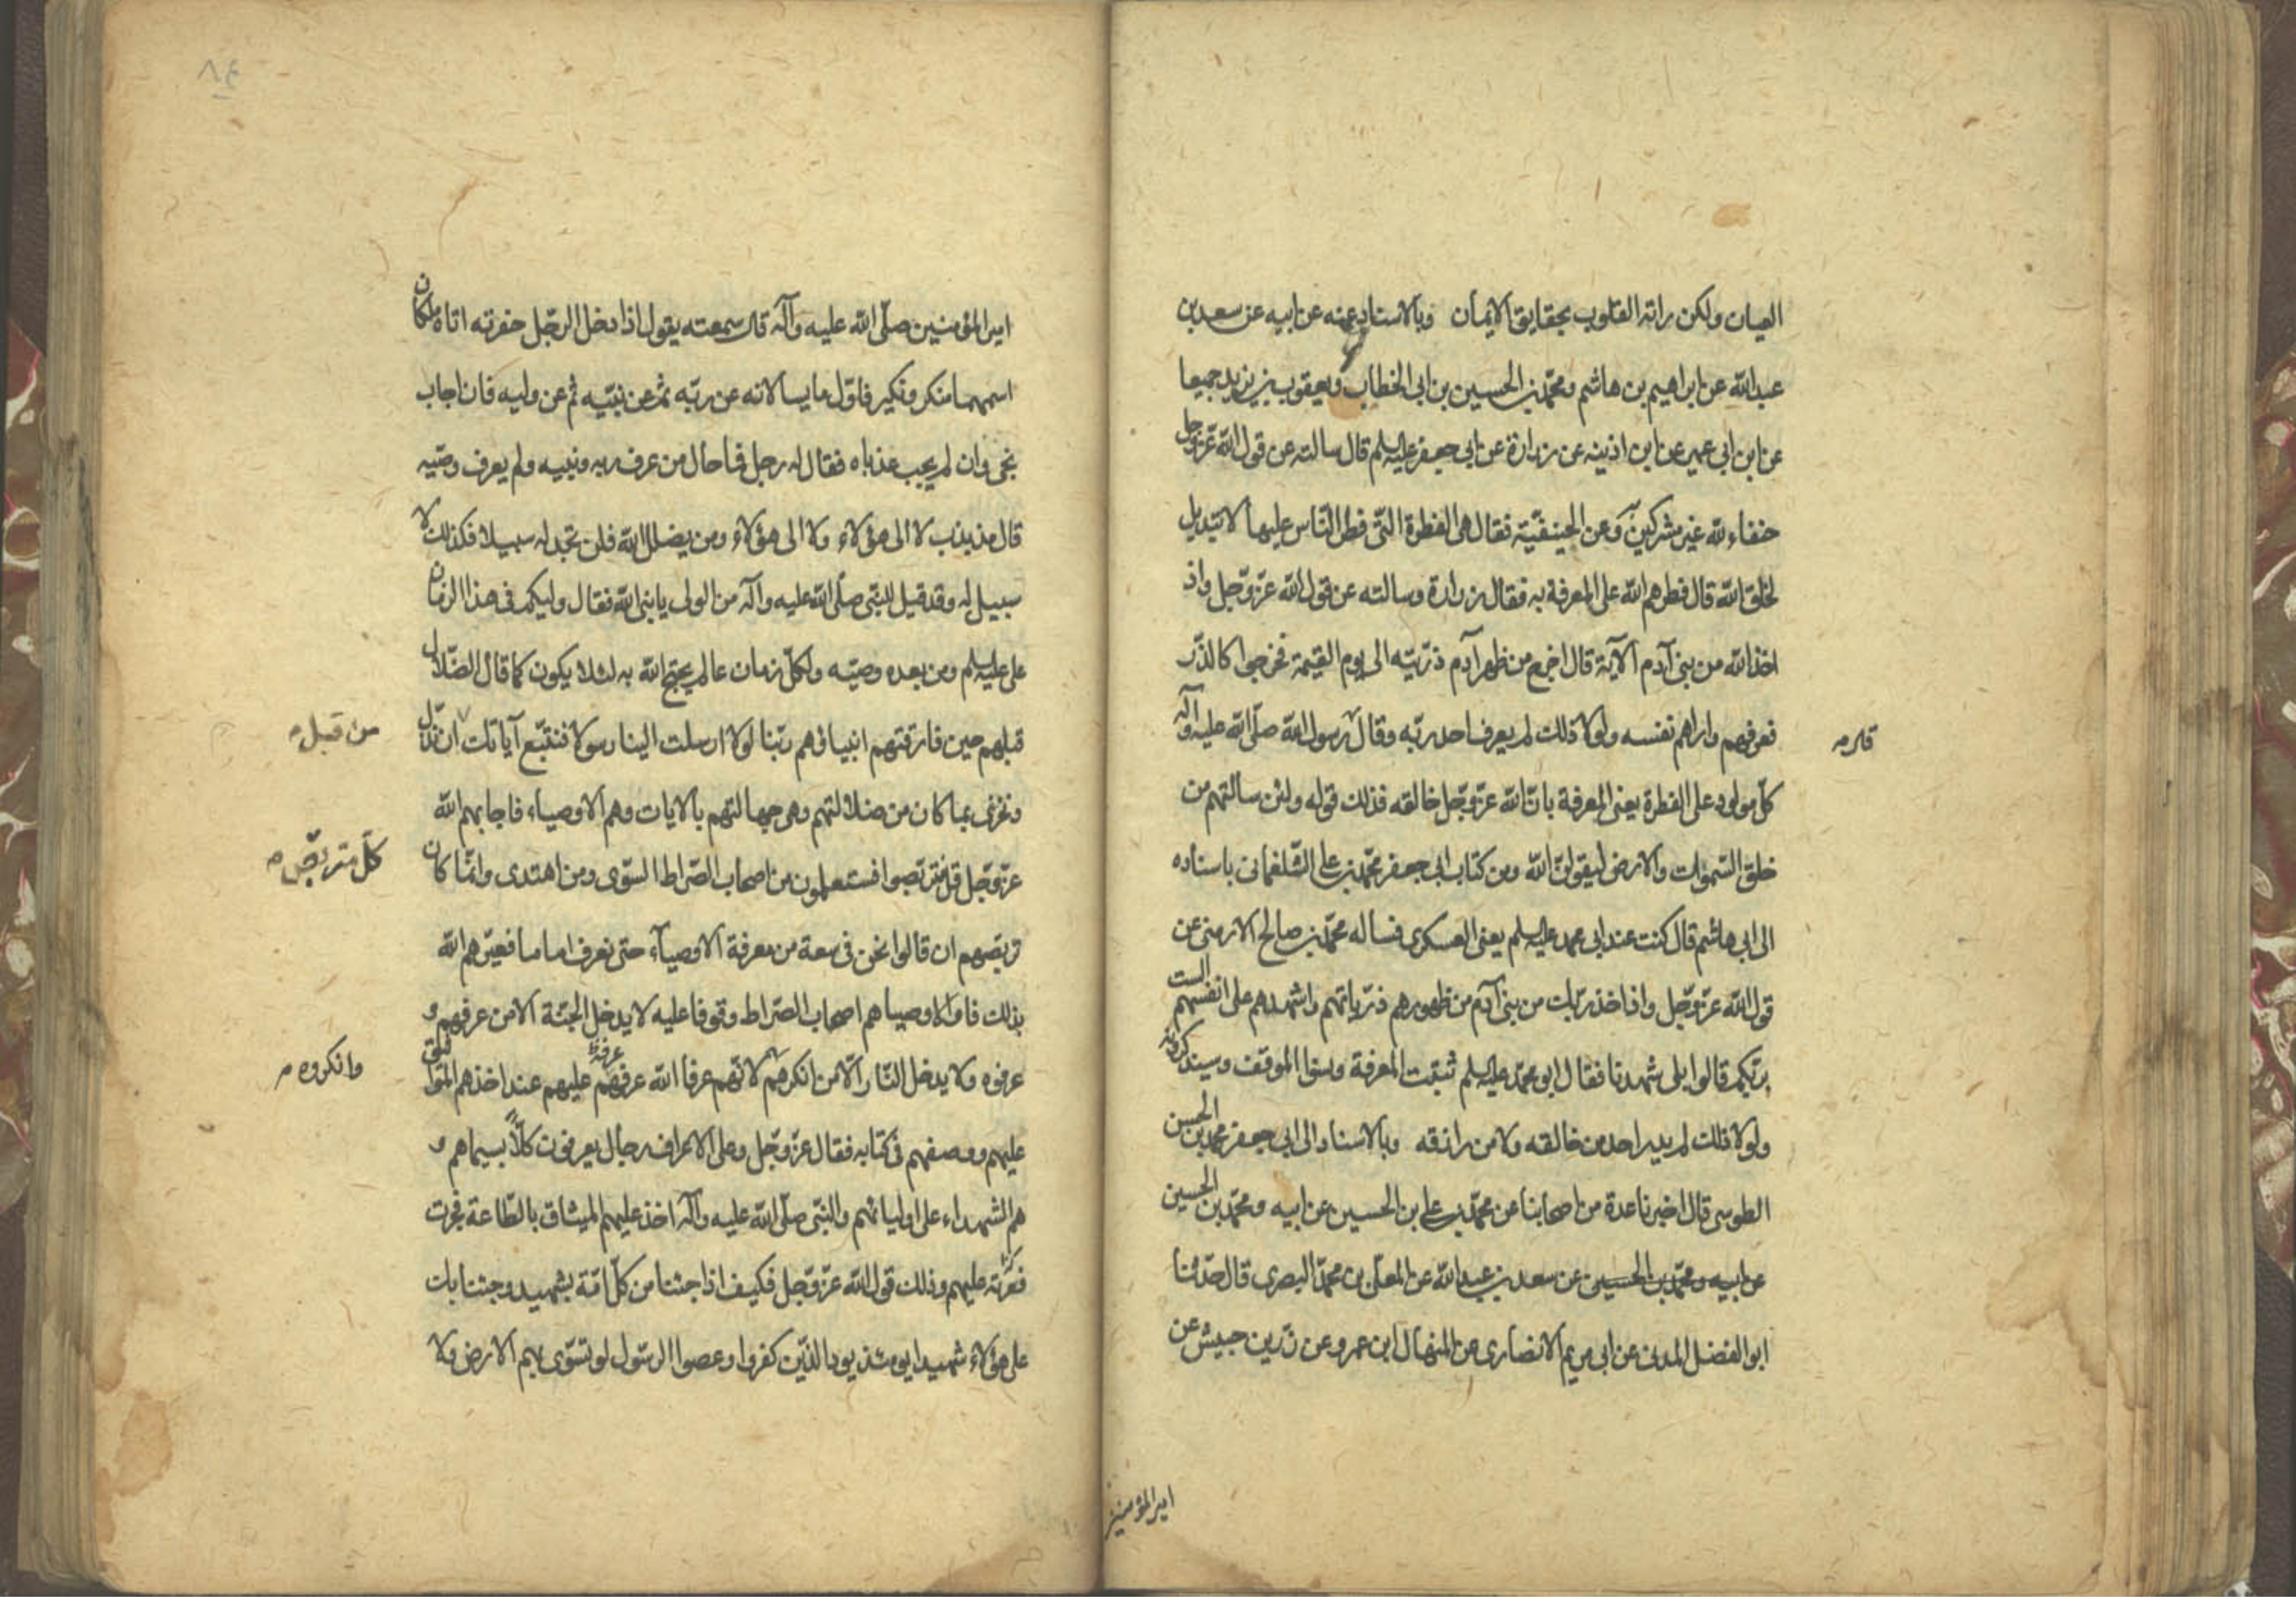 العيان ولكن راته القلوب بحقايق الايمان وبالاسناد عنه عن ابيه عن سعد بن
عبد الله عن ابراهيم بن هاشم ومحمد بن الحسين بن ابى الخطاب ويعقوب بن يزيد جميعا
عن ابن ابى عمير عن ابن اذينه عن زرارة عن ابى جعفر عليه السلم قال سالته عن قول الله عز وجل
حنفاء لله غير مشركين به وعن الحنيفيّة فقال هى الفطرة التّى فطر النّاس عليها لا تبديل
لخلق الله قال فطرهم الله على المعرفة به فقال زرارة وسالته عن قول الله عزّ وجّل واذ
اخذ الله من بنى آدم الآية قال اخرج من ظهر آدم ذرّيته الى يوم القيمة فخرجوا كالذّر
فعرفهم واراهم نفسه ولولا ذلك لم يعرف احد ربّه وقال رسول الله صلّى الله عليه وآله
قال
كلّ مولود على الفطرة يعنى المعرفة بانّ الله عزّ وجّل خالقه فذلك قوله ولئن سالتهم من
خلق السّموات والارض ليقولنّ الله ومن كتاب ابى جعفر محمّد بن على الشّلغمانى باسناده
الى ابى هاشم قال كنت عند ابى محمد عليه السلم يعنى العسكرى فساله محمّد بن صالح الارمنى عن
قول الله عزّ وجّل واذ اخذ ربّك من بنى آدم من ظهورهم ذرّياتهم واشهدهم على انفسهم الست
بربّكم قالوا بلى شهدنا فقال ابو محمّد عليه السلم ثبتت المعرفة ونسوا الموقف وسيذكرونه
ولولا ذلك لم يدر احد من خالقه ولا من رازقه وبالاسناد الى ابى جعفر محمد بن الحسن
الطوسى قال اخبرنا عدة من اصحابنا عن محمّد بن على بن الحسين عن ابيه ومحمّد بن الحسين
عن ابيه ومحمّد بن الحسين عن سعد بن عبد الله عن المعلّى بن محمّد البصرى قال حدّثنا
ابو الفضل المدنى عن ابى مريم الانصارى عن المنهال ابن عمرو عن زرّ بن حبيش عن
امير المؤمنين
٨٤
امير المؤمنين صلّى الله عليه وآله قال سمعته يقول اذا دخل الرجّل حفرته اتاه ملكان
اسمهما منكر ونكير فاوّل ما يسالانه عن ربّه ثمّ عن نبيّه ثم عن وليه فان اجاب
نجى وان لم يجب عذباه فقال له رجل فما حال من عرف ربه ونبيه ولم يعرف وصّيه
قال مذبذب لا الى هؤلاء ولا الى هؤلاء ومن يضلل الله فلن تجد له سبيلا فكذلك لا
سبيل له وقد قيل للنبّى صلّى الله عليه وآله من الولى يا نبى الله فقال وليكم فى هذا الزمان
على عليه السلم ومن بعده وصيّه ولكلّ زمان عالم يحتج الله به لئلا يكون كما قال الضّلال
قبلهم حين فارقتهم انبياؤهم ربّنا لولا ارسلت الينا رسولا فنتّبع آياتك ان نذلّ
من قبل
ونخزى بما كان من ضلالتهم وهى جهالتهم بالايات وهم الاوصياء فاجابهم الله
عزّ وجّل قل فتربّصوا فستعلمون من اصحاب الصّراط السّوى ومن اهتدى وانّما كان
كلّ متربّص
تربّصهم ان قالوا نحن فى سعة من معرفة الاوصيآء حتى نعرف اماما فعيّرهم الله
بذلك فالاوصياهم اصحاب الصّراط وقوفا عليه لا يدخل الجنّة الا من عرفهم و
عرفوه ولا يدخل النّار الّا من انكرهم لانّهم عرفا الله عرفهم عليهم عند اخذهم المواثيق
وانكروه
عرفهم
عليهم ووصفهم فى كتابه فقال عزّ وجّل وعلى الاعراف رجال يعرفون كلّاً بسيماهم و
هم الشهداء على اوليائهم والنبّى صلّى الله عليه وآله اخذ عليهم الميثاق بالطّاعة فجرت
عليهم وذلك قول الله عزّ وجّل فكيف اذا جئنا من كلّ امّة بشهيد وجئنا بك
على هؤلاء شهيدا يومئذ يود الذين كفروا وعصوا الرسول لو تسوّى بهم الارض ولا